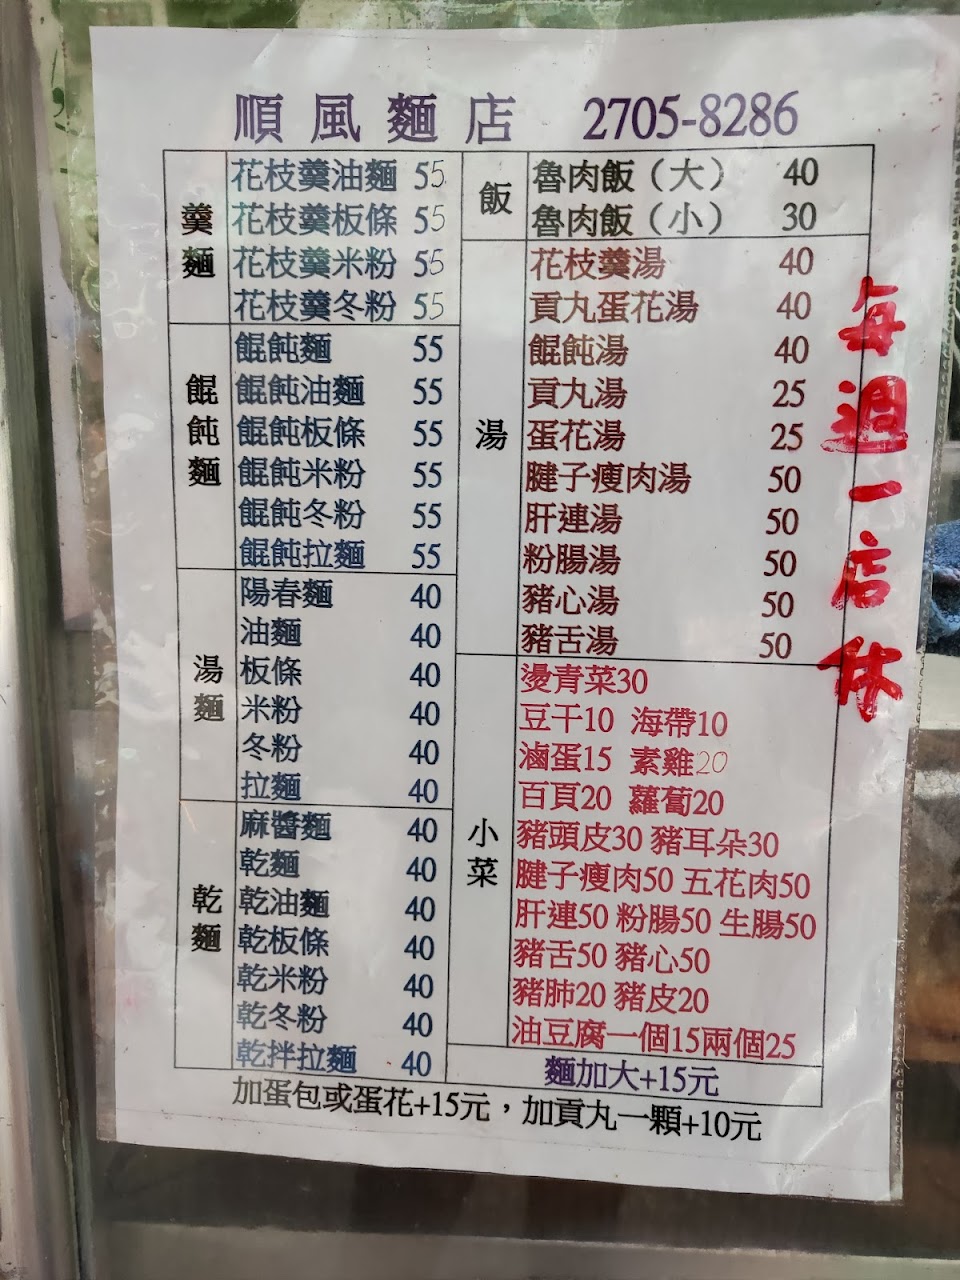 順風麵店 2705-8286
羹麵
花枝羹油麵 55
花枝羹板條 55
花枝羹米粉 55
花枝羹冬粉 55
餛飩麵
餛飩麵 55
餛飩油麵 55
餛飩板條 55
餛飩米粉 55
餛飩冬粉 55
餛飩拉麵 55
湯麵
陽春麵 40
油麵 40
板條 40
米粉 40
冬粉 40
拉麵 40
乾麵
麻醬麵 40
乾麵 40
乾油麵 40
乾板條 40
乾米粉 40
乾冬粉 40
乾拌拉麵 40
飯
魯肉飯（大） 40
魯肉飯（小） 30
湯
花枝羹湯 40
貢丸蛋花湯 40
餛飩湯 40
貢丸湯 25
蛋花湯 25
腱子瘦肉湯 50
肝連湯 50
粉腸湯 50
豬心湯 50
豬舌湯 50
小菜
燙青菜30
豆干10 海帶10
滷蛋15 素雞20
百頁20 蘿蔔20
豬頭皮30 豬耳朵30
腱子瘦肉50 五花肉50
肝連50 粉腸50 生腸50
豬舌50 豬心50
豬肺20 豬皮20
油豆腐一個15兩個25
麵加大+15元
加蛋包或蛋花+15元，加貢丸一顆+10元
每週一店休